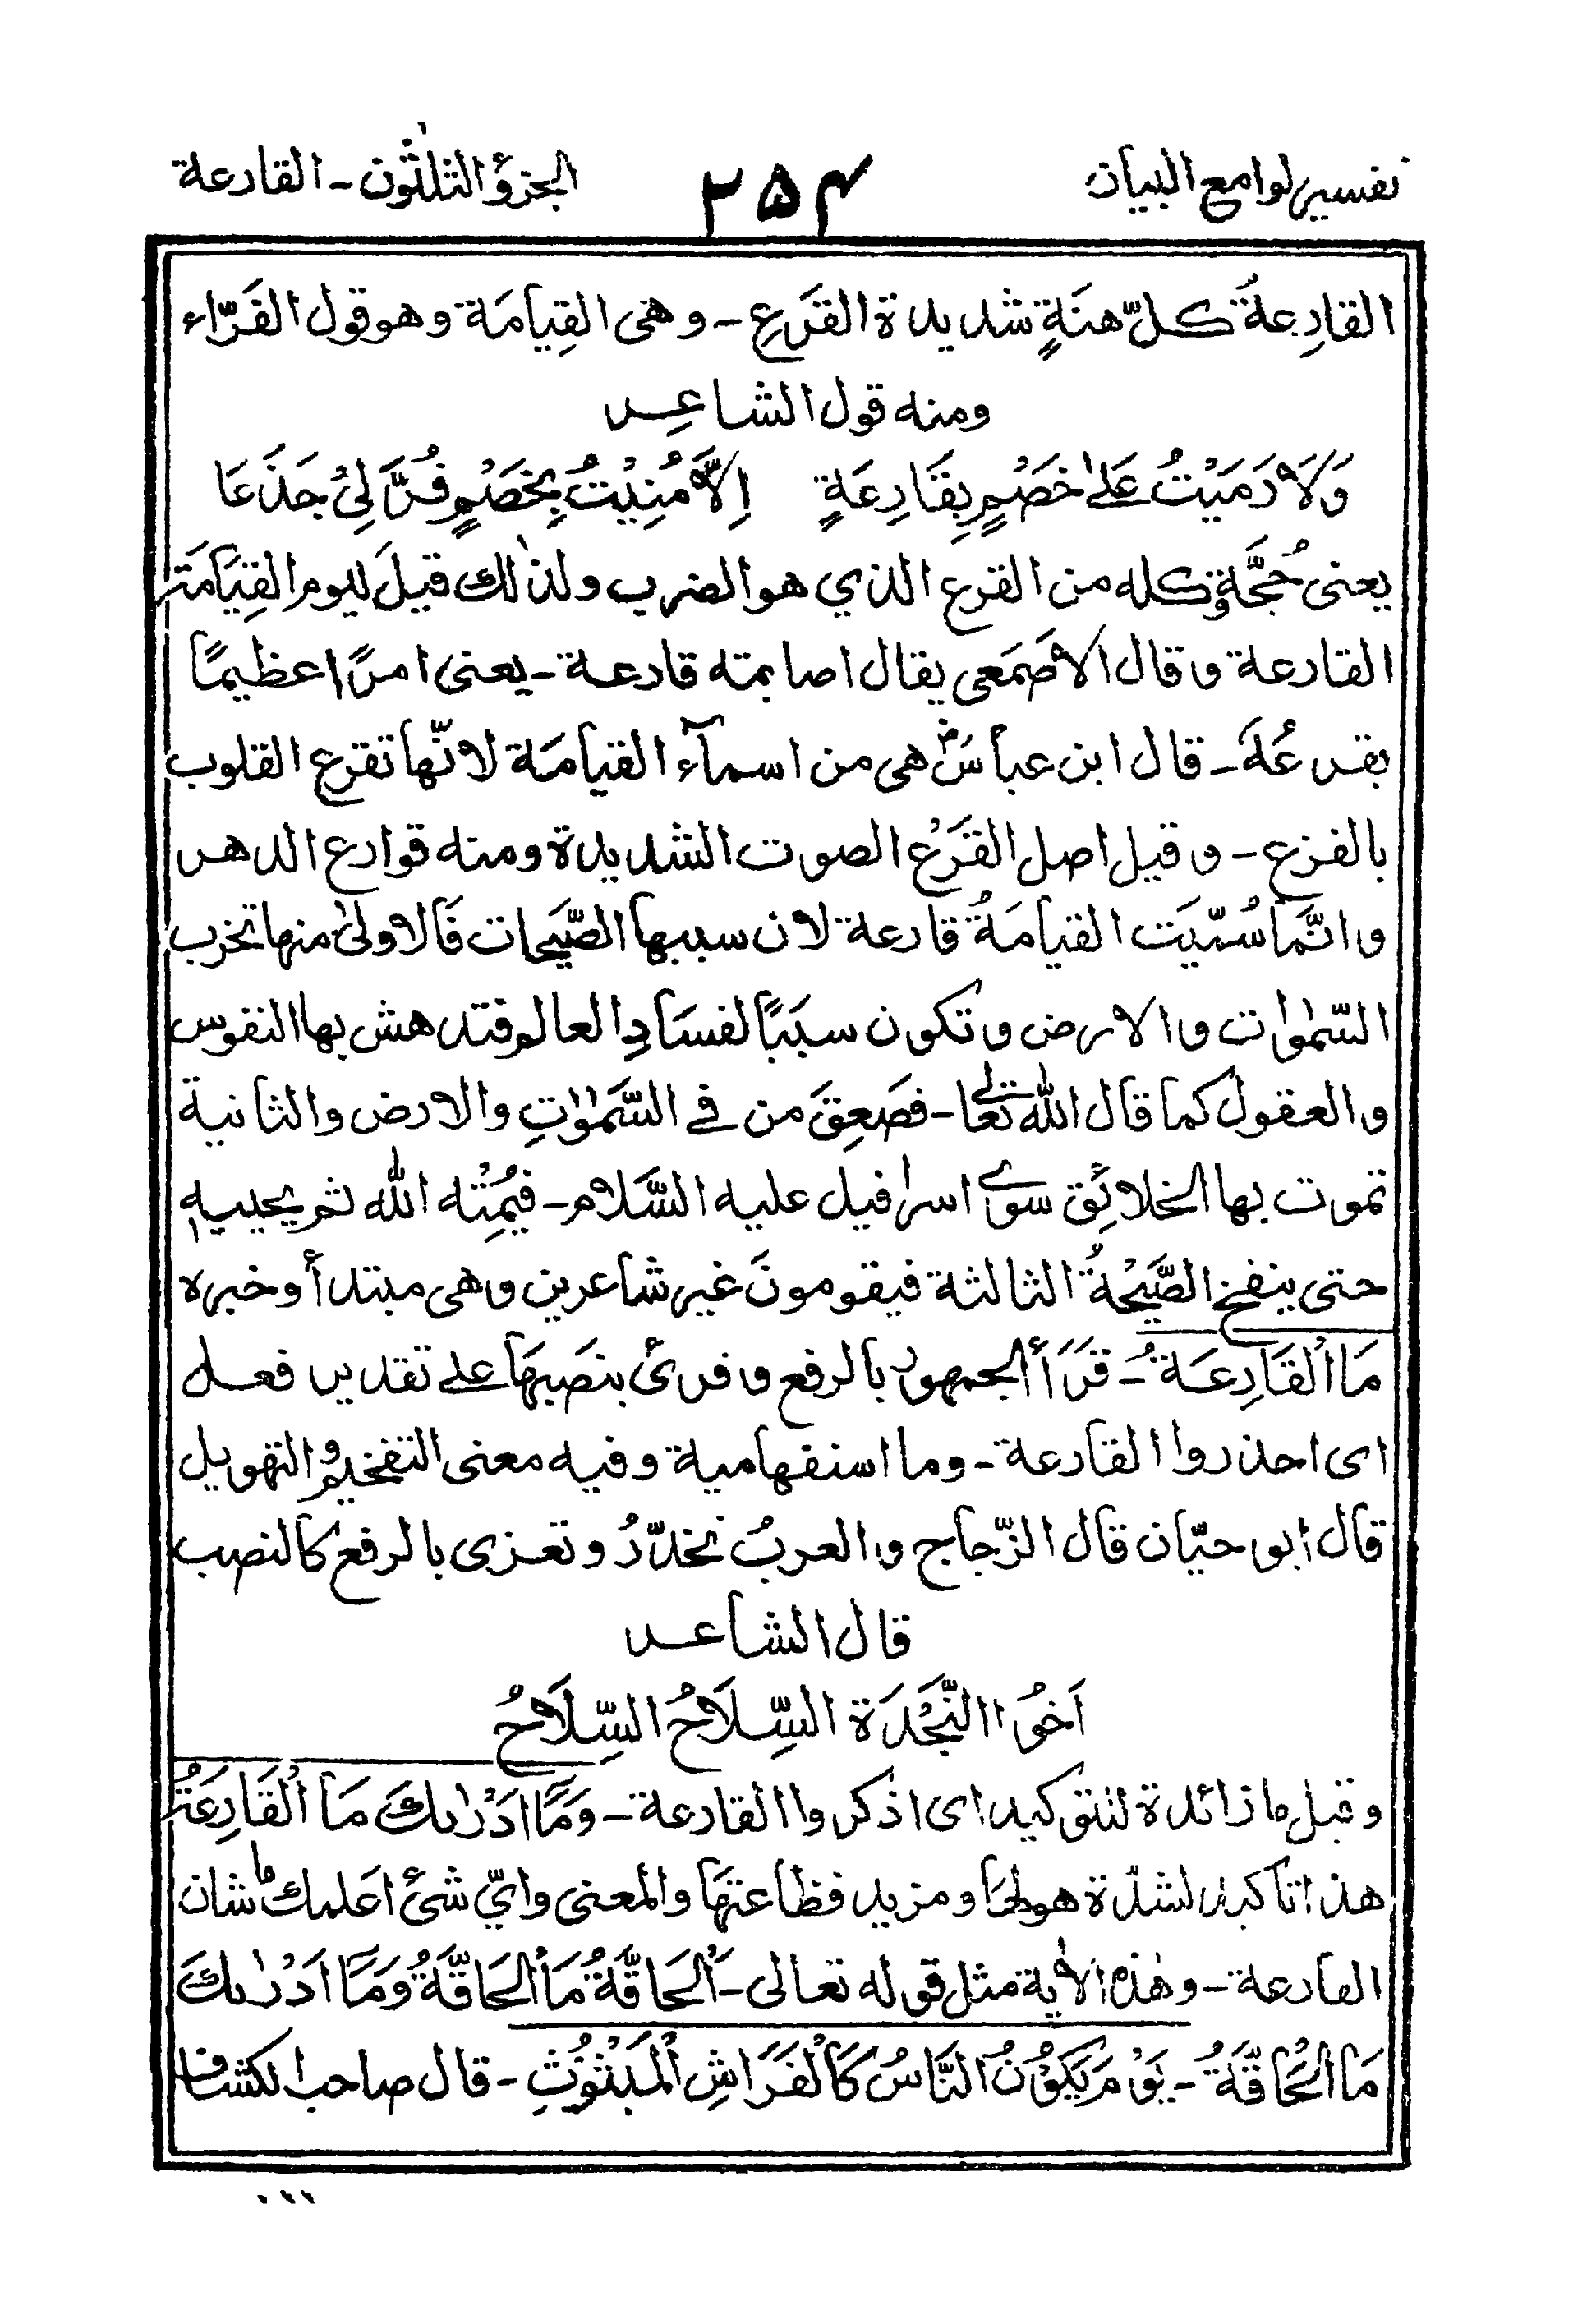 تفسير لوامع البيان
٢٥٤
الجزؤ الثلٰثون - القارعة
القارِعةُ كلّ هنَةٍ شديدة القَرَعِ - وهى القِيامَة وهو قول الفَرّاء
ومنه قول الشاعِر
وَلَا رَمَيْتُ عَلىٰ خَصْمٍ بِقَارِعَةٍ اِلَّا مُنِيْتُ بِخَصْمٍ فُرَّ لِىْ جَذَعَا
يعنى حُجَّة وكله من القرع الذي هو الضرب ولذٰلك قيلَ ليوم القِيَامَة
القارعة و قال الاصَمَعى يقال اصابته قارعة - يعنى امرًا عظيمًا
يقرعُهَ - قال ابن عباسؓ هى من اسمآء القيامَة لانّها تقرع القلوب
بالفزع - و قيل اصل القَرَعْ الصوت الشديدة ومنه قوارع الدهر
و انّما سُمّيَت القيامَةُ قارعة لان سببها الصَّيحات فَالاولىٰ منها تخرب
السّمٰوٰت و الارض و تكون سبَبًا لفسَادِ العالم فتدهش بها النفوس
و العقول كما قال الله تعالىٰ - فصَعِقَ من فے السَّمٰوٰتِ والارض والثانية
تموت بها الخلائِق سوے اسرافيل عليه السَّلام - فيُمِتْه الله ثم يحييه
حتى ينفخ الصَّيْحةُ الثالثة فيقومونَ غير شاعرين و هى مبتدأ و خبره
مَا الْقَارِعَةُ - قَرَأَ الجمهور بالرفع و قرئ بنصَبِهَا على تقدير فعل
اى احذروا القارعة - وما استفهامية وفيه معنى التفخيم والتهويل
قال ابو حيّان قال الزّجاج و العربُ تحذّرُ و تغرى بالرفع كالنصب
قال الشاعر
اَخُوا النَّجْدَة السِّلَاحُ السِّلَاحُ
و قيل ما زائدة للتوكيد اى اذكروا القارعة - وَمَّا اَدْرٰىكَ مَا الْقَارِعَةُ
هذا تاكيد لشدّة هولِهَا و مزيد فظاعتهَا والمعنى وايّ شئ اعلمك ما شان
القارعة - وهٰذه الاٰية مثل قوله تعالى - اَلْحَاقَّةُ مَا الْحَاقَّةُ وَمَّا اَدْرٰىكَ
مَا الْحَاقَّةُ - يَوْمَ يَكُوْنُ النَّاسُ كَالْفَرَاشِ الْمَبْثُوْثِ - قال صاحب الكشاف